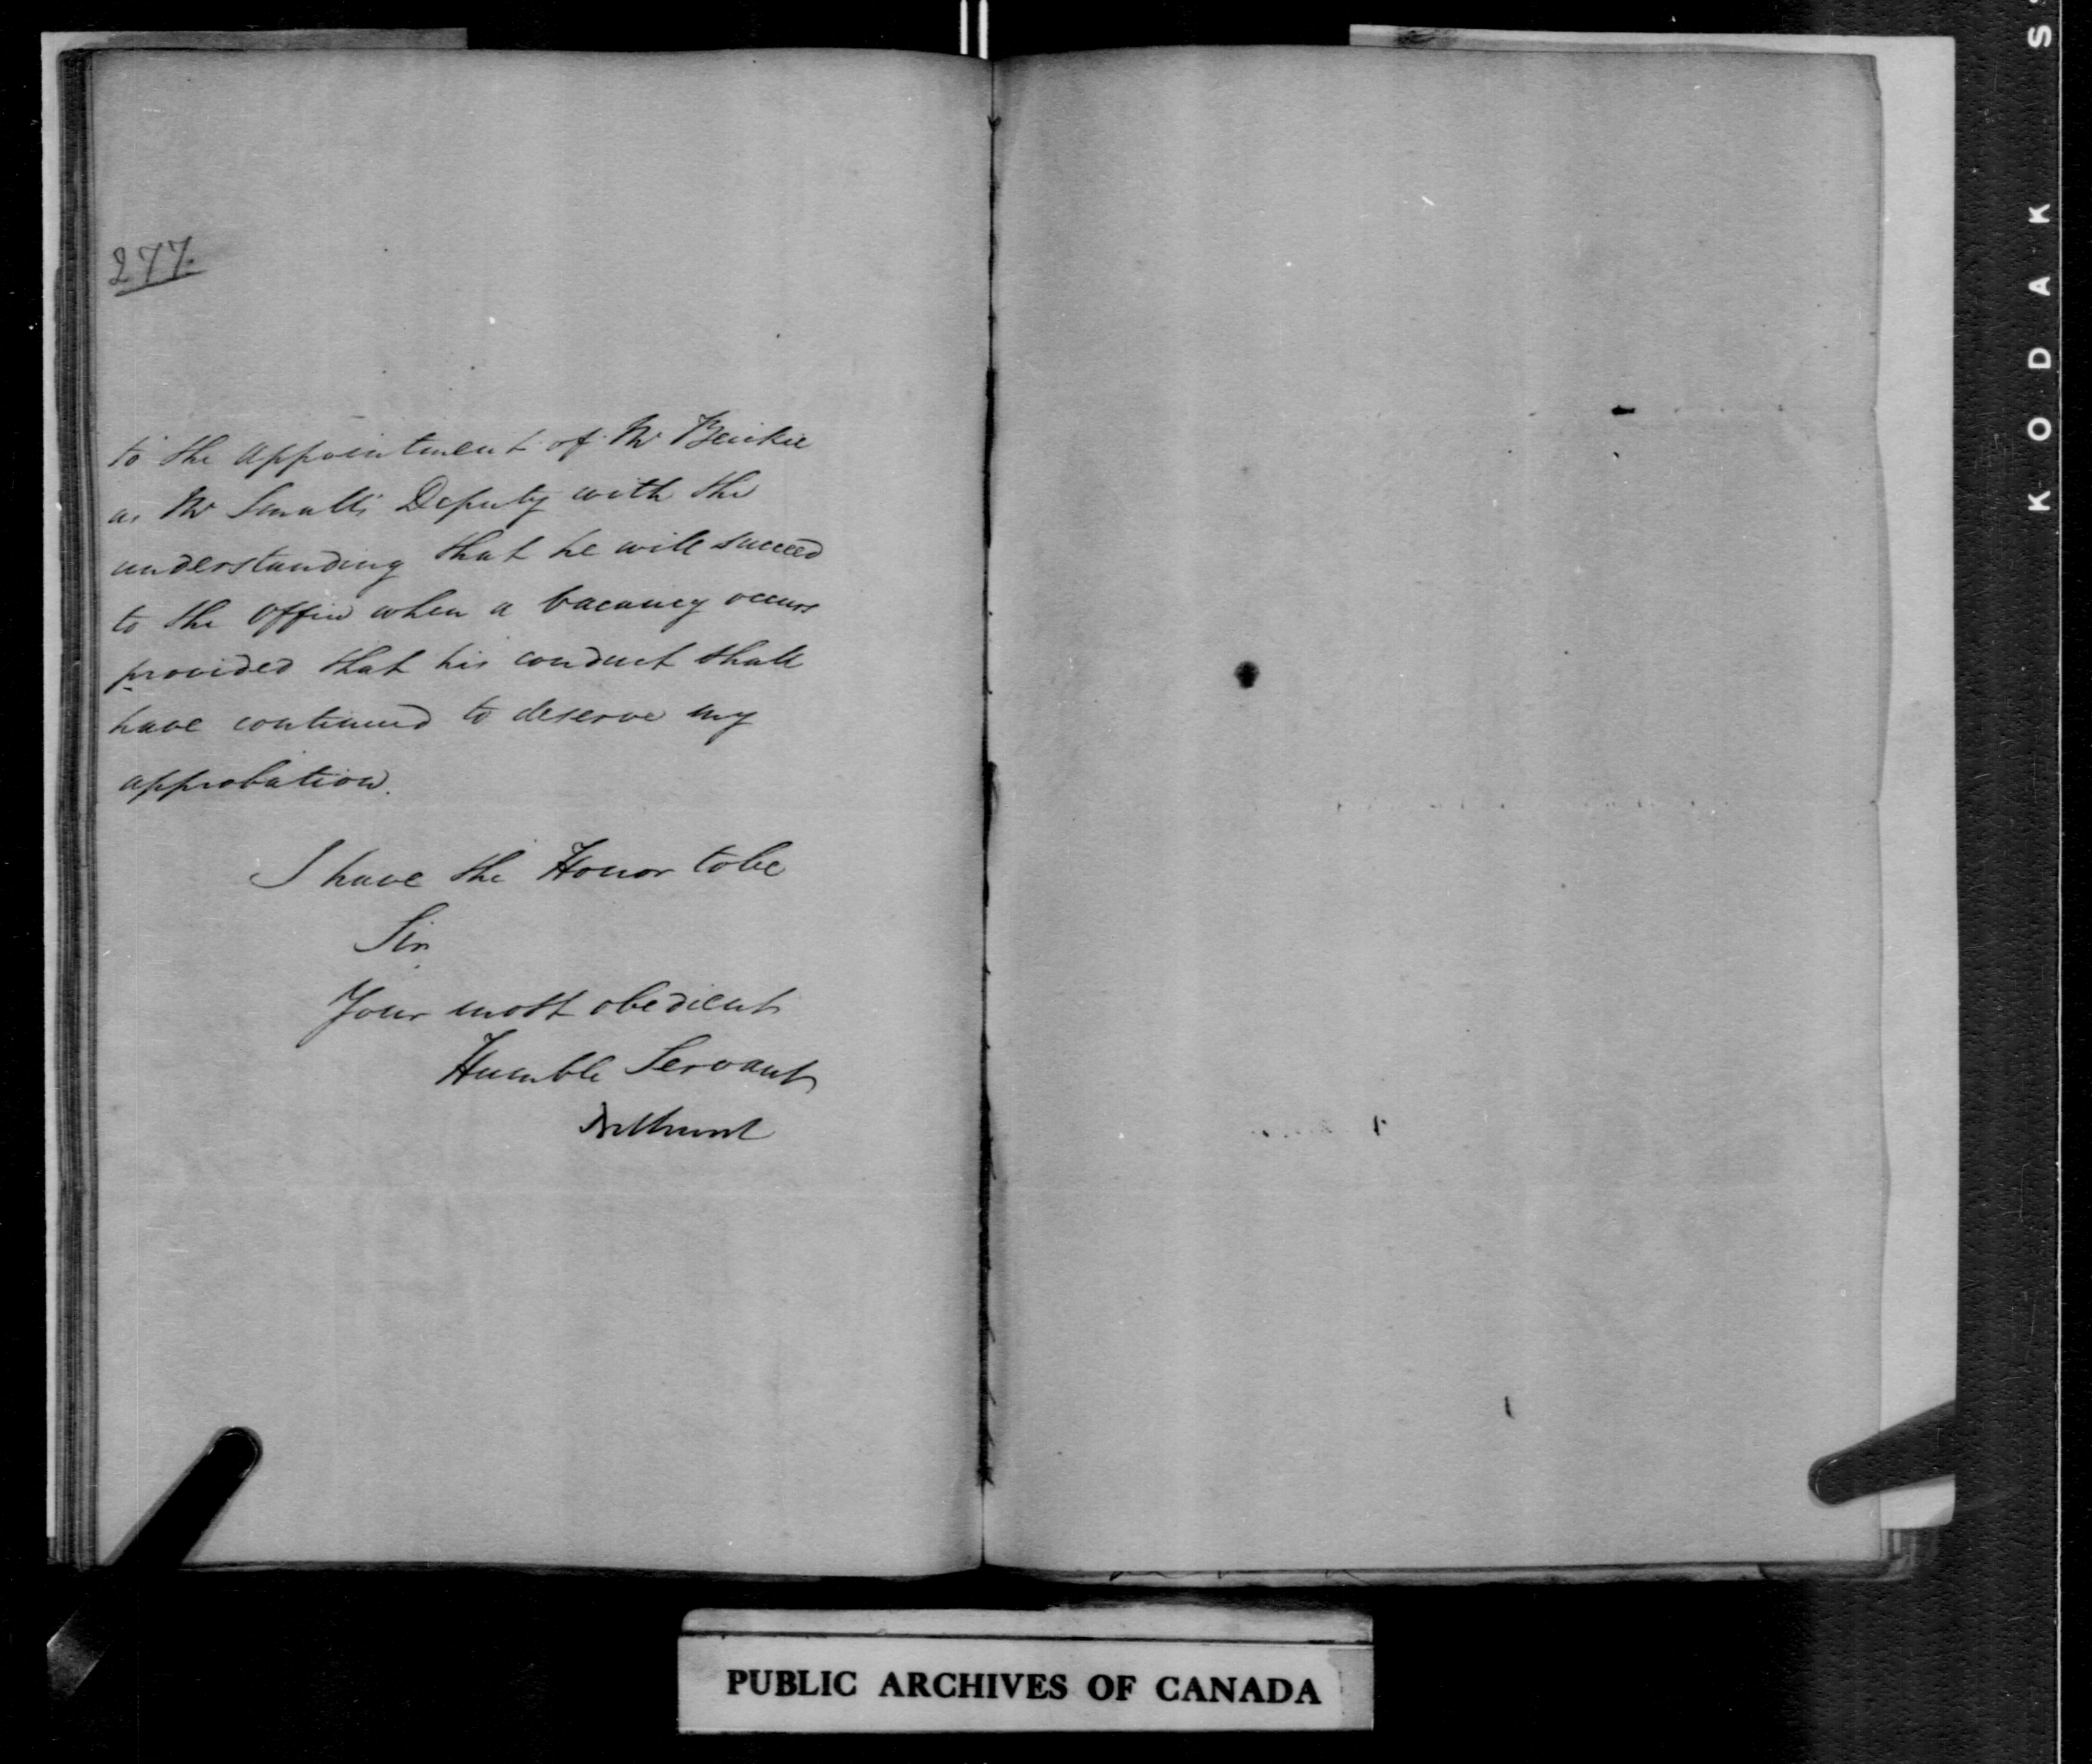 277.
to the appointment of Mr Beikie
as Mr Small's Deputy with the
understanding that he will succeed
to the Office when a vacancy occurs
provided that his conduct shall
have continued to deserve my
approbation.
I have the Honor to be
Sir
Your most obedient
Humble Servant
Bathurst
PUBLIC ARCHIVES OF CANADA
KODAK S